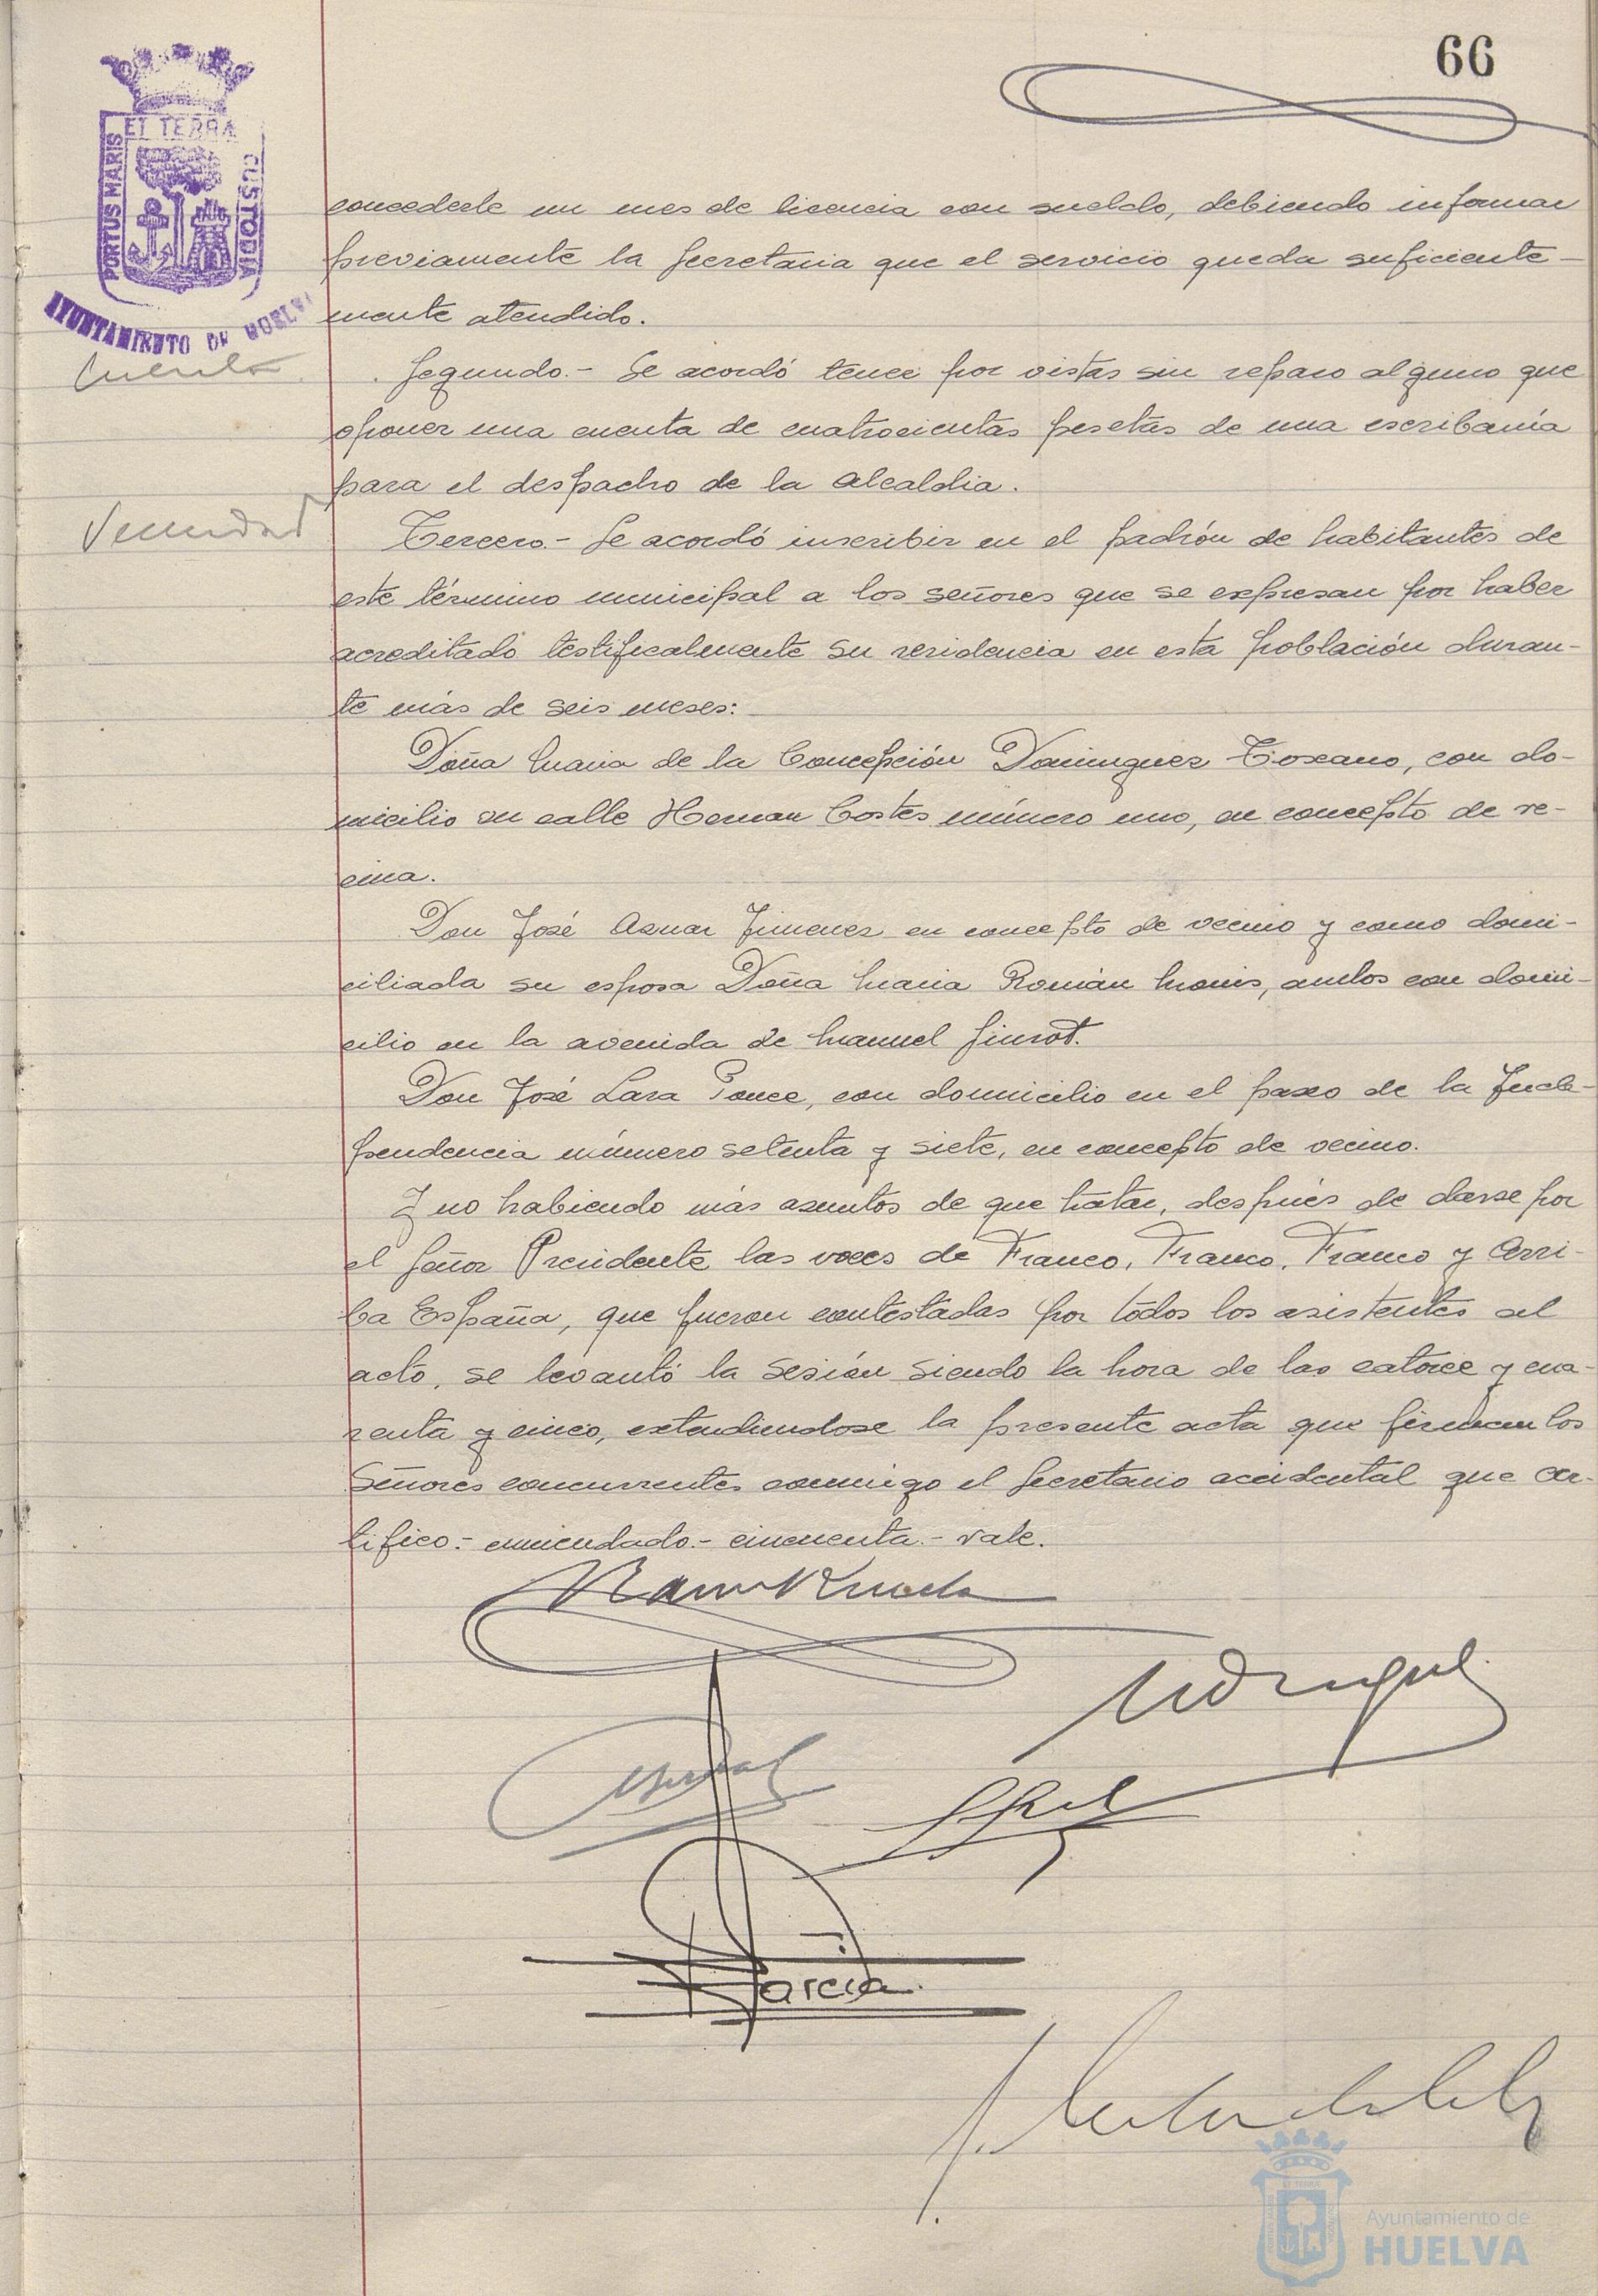 66
ET TERRA
PORTUS MARIS
CUSTODIA
AYUNTAMIENTO DE HUELVA
concederle un mes de licencia con sueldo, debiendo informar
previamente la Secretaria que el servicio queda suficiente-
mente atendido.
Cuenta
Segundo.- Se acordó tener por vistas sin reparo alguno que
oponer una cuenta de cuatrocientas pesetas de una escribanía
para el despacho de la Alcaldia.
Vecindad
Tercero.- Se acordó inscribir en el padrón de habitantes de
este término municipal a los señores que se expresan por haber
acreditado testificalmente su residencia en esta población duran-
te más de seis meses:
Doña Maria de la Concepción Dominguez Toscano, con do-
micilio en calle Hernan Cortes número uno, en concepto de ve-
cina.
Don José Aznar Jimenez en concepto de vecino y como domi-
ciliada su esposa Doña Maria Román, ambos con domi-
cilio en la avenida de Manuel Siurot.
Don José Lara Ponce, con domicilio en el paseo de la Inde-
pendencia número setenta y siete, en concepto de vecino.
Y no habiendo más asuntos de que tratar, después de darse por
el Señor Presidente las voces de Franco, Franco, Franco y Arri-
ba España, que fueron contestadas por todos los asistentes al
acto, se levantó la sesión siendo la hora de las catorce y cua-
renta y cinco, extendiendose la presente acta que firman los
Señores concurrentes conmigo el Secretario accidental que cer-
tifico.- enmendado.- cincuenta.- vale.
García
Ayuntamiento de
HUELVA